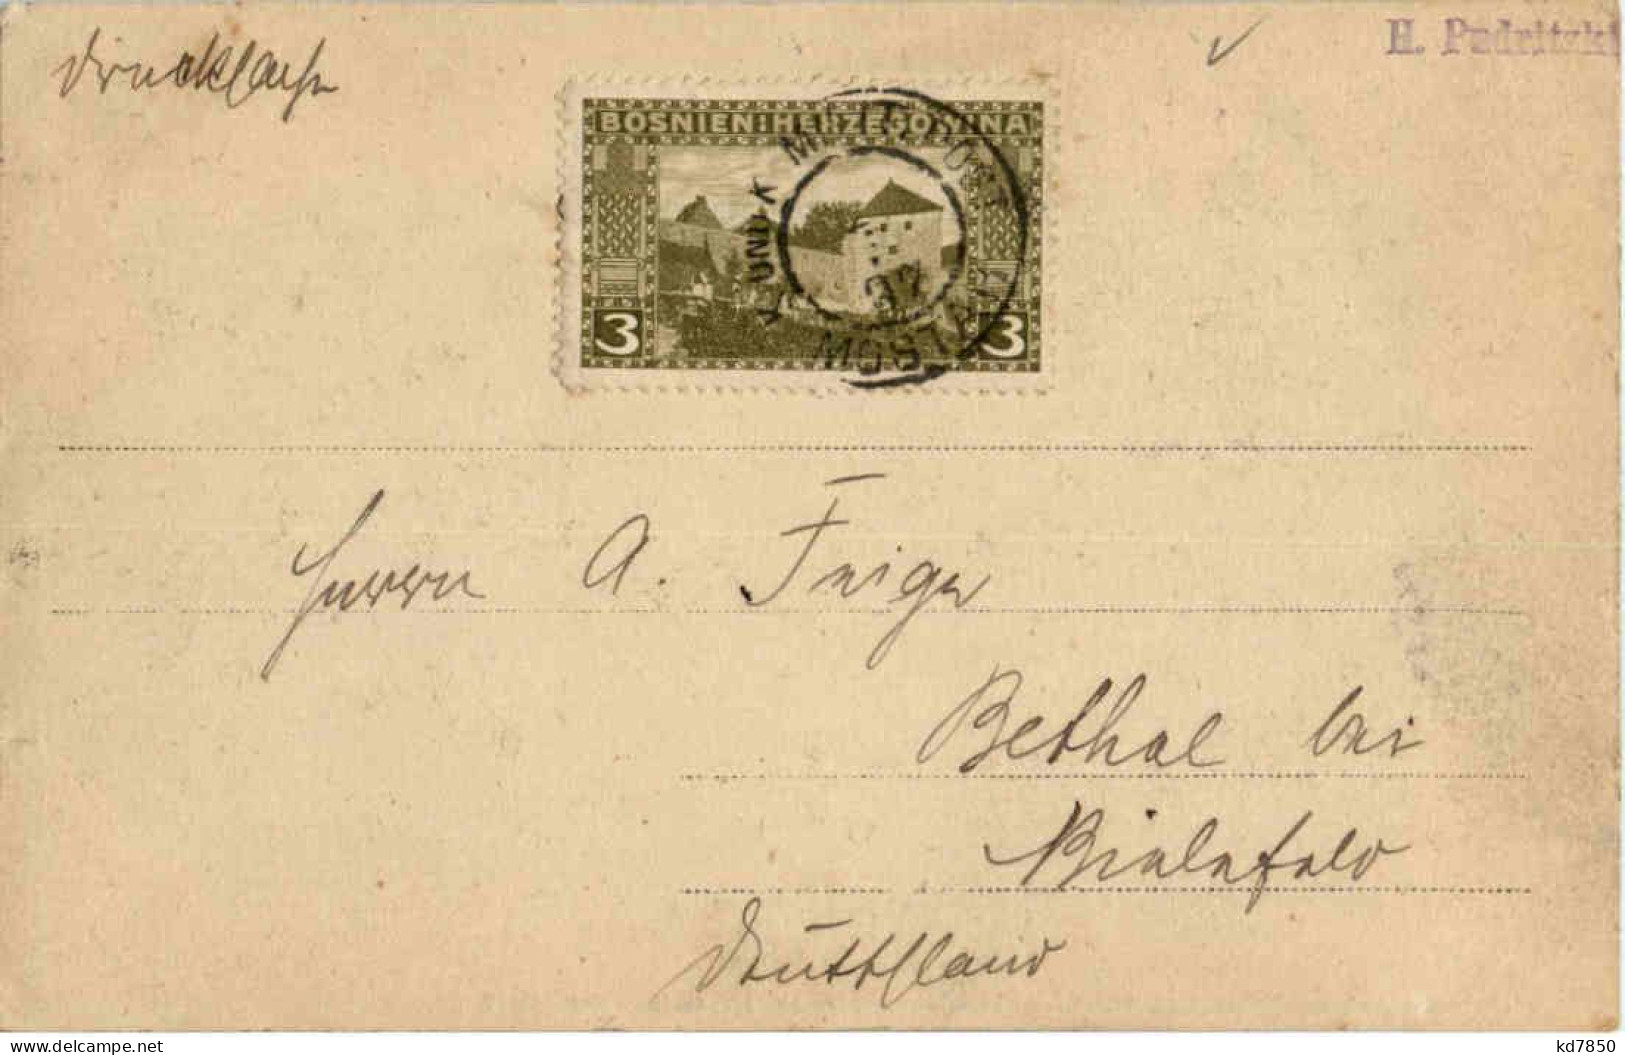 Drucksache
H. Padritzki
BOSNIEN:HERZEGOVINA
K. UND K. MILIT. POST
MOSTAR
3 3
Herrn A. Feiger
Bethel bei
Bielefeld
Deutschland
www.delcampe.net
kd7850